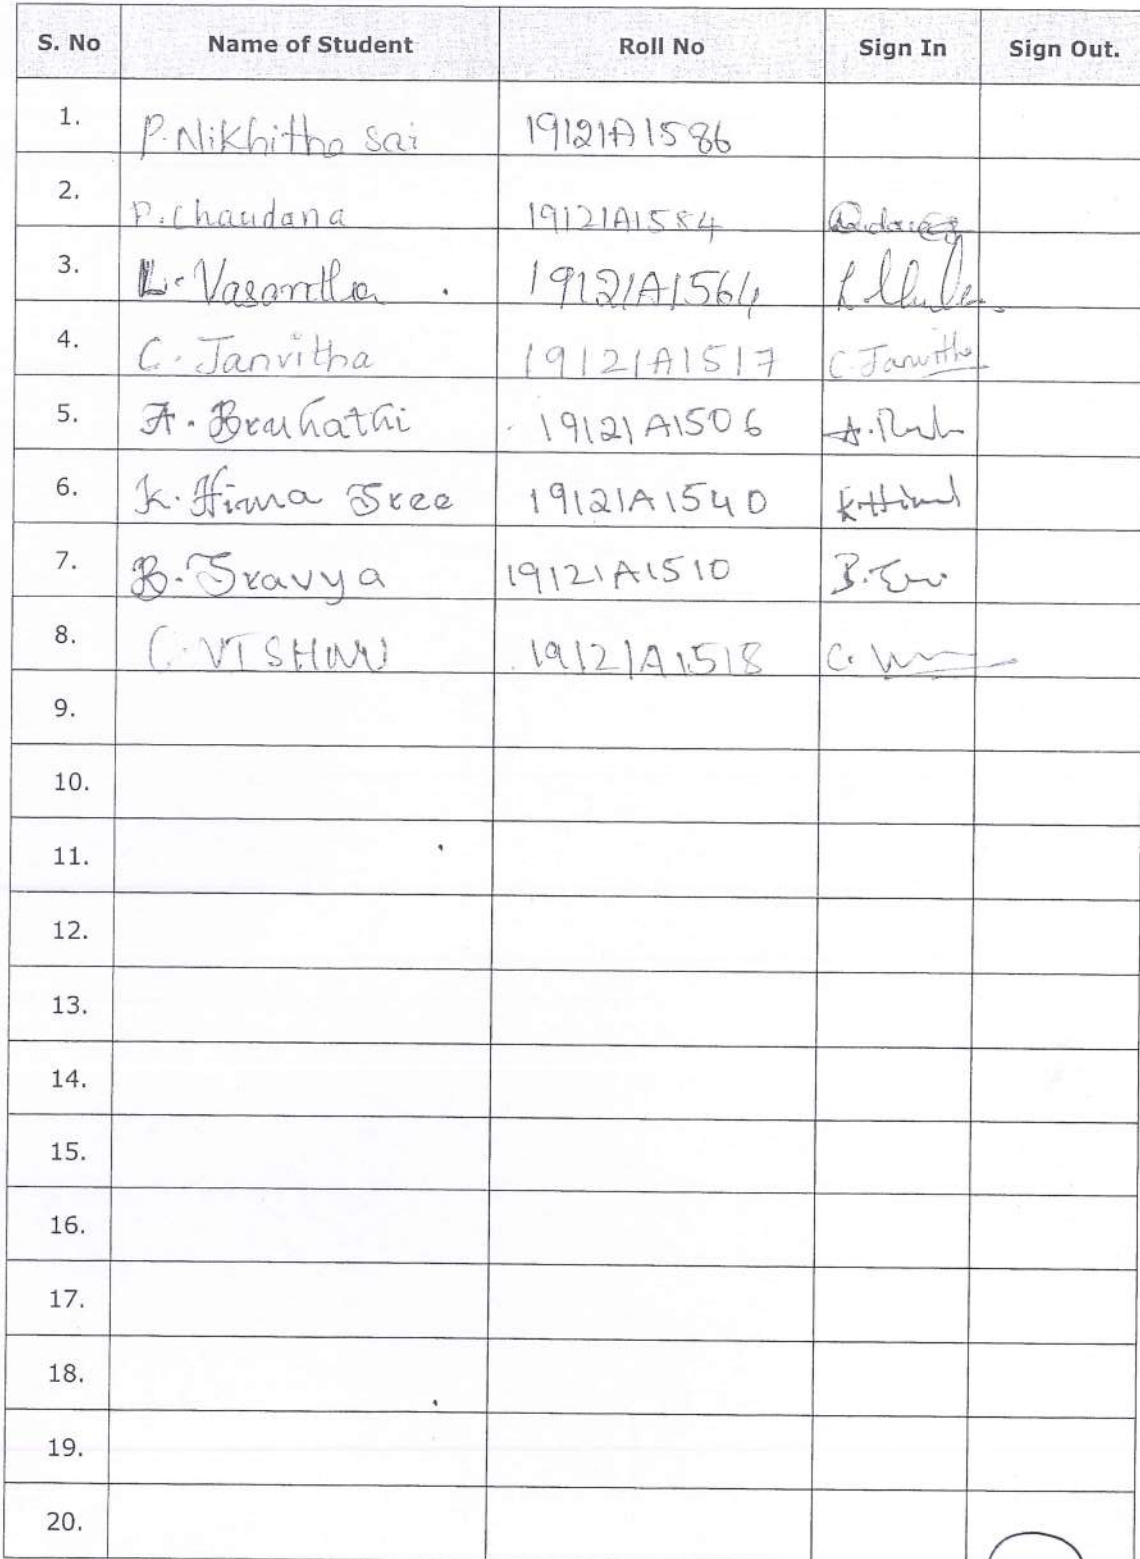 S. No Name of Student Roll No Sign In Sign Out.
1. P. Nikhitha Sai 19121A1586
2. P. Chandana 19121A1584
3. L. Vasantha 19121A1564
4. C. Janvitha 19121A1517 C. Janvitha
5. A. Brauhathi 19121A1506
6. K. Hima Sree 19121A1540 K. Hima
7. B. Sravya 19121A1510
8. C. VISHNU 19121A1518
9.
10.
11.
12.
13.
14.
15.
16.
17.
18.
19.
20.